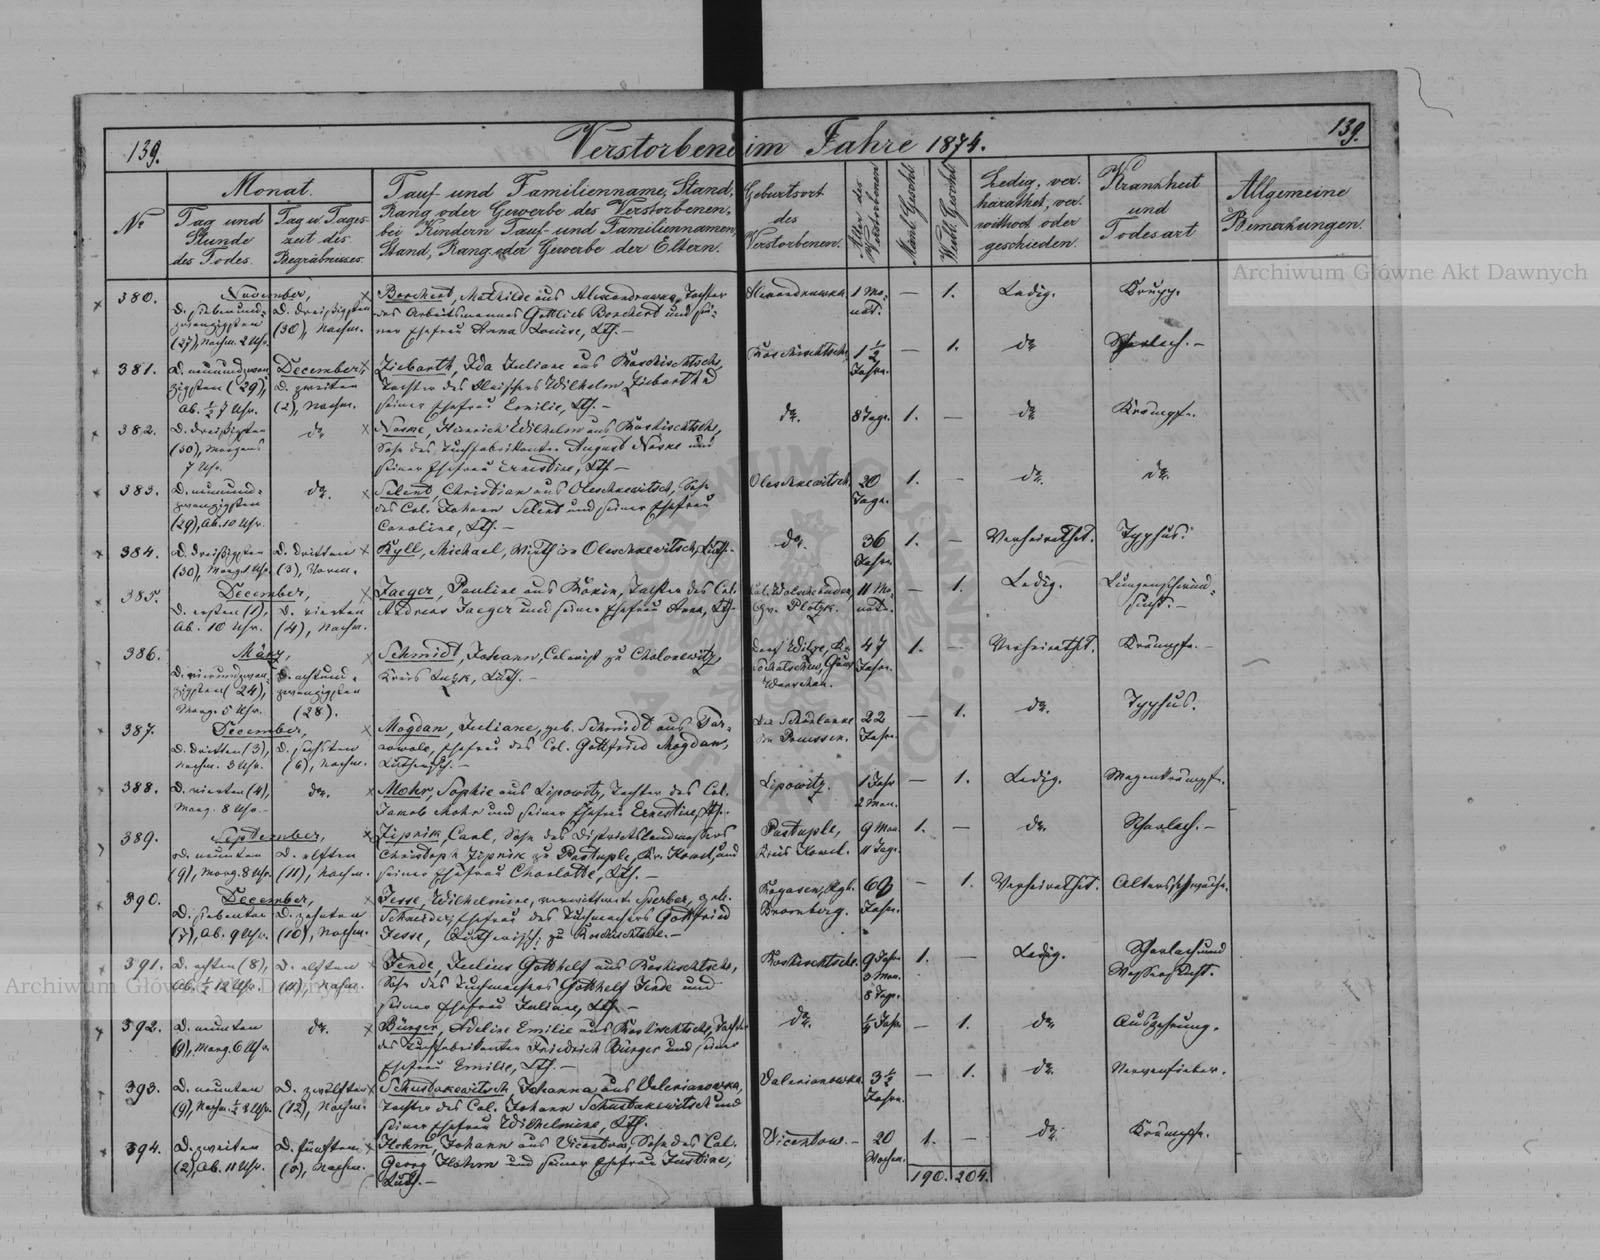 139.
Verstorbene im Jahre 1874.
139.
No
Monat.
Tag und Stunde des Todes.
Tag u. Tages-zeit des Begräbnisses.
Tauf- und Familienname, Stand,
Rang oder Gewerbe des Verstorbenen,
bei Kindern Tauf- und Familiennamen,
Stand, Rang oder Gewerbe der Eltern.
Geburtsort
des
Verstorbenen.
Alter des Verstorbenen
Männl. Geschl.
Weibl. Geschl.
Ledig, ver-
harathet, ver-
wittwet oder
geschieden.
Krankheit
und
Todesart
Allgemeine
Bemerkungen.
380. November,
D. siebenund-
zwanzigsten
(27), Nachm. 2 Uhr.
D. dreißigsten
(30), Nachm.
Borchert, Mathilde aus Alexandrowka, Tochter
des Arbeitsmannes Gottlieb Borchert und sei-
ner Ehefrau Anna Louise, Lth. —
Alexandrowka. 1 Mo-
nat. — 1. Ledig. Krupp.
381. D. neunundzwan-
zigsten (29),
Ab. ½ 7 Uhr.
December,
D. zweiten
(2), Nachm.
Ziebarth, Ida Juliane aus Roschischtsche,
Tochter des Fleischers Wilhelm Ziebarth u
seiner Ehefrau Emilie, Lth. —
Roschischtsche. 1½
Jahre. — 1. do. Scharlach. —
382. D. dreißigsten
(30), Morgens
7 Uhr.
do.
Noske, Heinrich Wilhelm aus Roschischtsche,
Sohn des Tuchfabrikanten August Noske und
seiner Ehefrau Ernestine, Lth —
do. 8 Tage. 1. — do. Krämpfe.
383. D. neunund-
zwanzigsten
(29), Ab. 10 Uhr.
do.
Selent, Christian aus Oleschkewitsch, Sohn
des Col. Johann Selent und seiner Ehefrau
Caroline, Lth. —
Oleschkewitsch. 20
Tage. 1. — do. do.
384. D. dreißigsten
(30), Morg. Uhr.
D. dritten
(3), Vorm.
Kyll, Michael, Wirth in Oleschkewitsch, Luth. —
do. 36
Jahre. 1. — Verheirathet. Typhus.
385. December,
D. ersten (1),
Ab. 10 Uhr.
D. vierten
(4), Nachm.
Jaeger, Pauline aus Tochter des Col.
Andreas Jaeger und seiner Ehefrau Anna, Lth. —
Gv. Plotzk. 11 Mo-
nate. — 1. Ledig. Lungenschwind-
sucht. —
386. März,
D. vierundzwan-
zigsten (24),
Morg. 5 Uhr.
D. achtund-
zwanzigsten
(28).
Schmidt, Johann, Colonist zu
Kreis Luzk, Luth. —
Warschau. 47
Jahre. 1. — Verheirathet. Krämpfe. —
387. December,
D. dritten (3),
Nachm. 3 Uhr.
D. sechsten
(6), Nachm.
Mogdan, Juliane, geb. Schmidt aus Tar-
nowole, Ehefrau des Col. Gottfried Mogdan,
Lutherisch. —
in Preussen. 22
Jahre. — 1. do. Typhus.
388. D. vierten (4),
Morg. 8 Uhr. —
do.
Mohr, Sophie aus Lipowitz, Tochter des Col.
Jakob Mohr und seiner Ehefrau Ernestine, Lth. —
Lipowitz. 1 Jahr
2 Mon. — 1. Ledig. Magenkrämpfe.
389. September,
D. neunten
(9), Morg. 8 Uhr.
D. elften
(11), Nachm.
Zipnik, Carl, Sohn des
Christoph Zipnik zu Pastuple, Kr. Kowel, und
seiner Ehefrau Charlotte, Lth. —
Pastuple,
Kreis Kowel. 9 Mon.
11 Tage. 1. — do. Scharlach. —
390. December,
D. siebenten
(7), Ab. 9 Uhr.
D. zehnten
(10), Nachm.
Jesse, Wilhelmine, verwittwete Sperber, geb.
Schneider, Ehefrau des Tuchmachers Gottfried
Jesse, Lutherisch, zu Roschischtsche. —
Rogasen, Rgb.
Bromberg. 69
Jahre. — 1. Verheirathet. Altersschwäche.
391. D. achten (8),
Ab. ½ 12 Uhr.
D. elften
(11), Nachm.
Jende, Julius Gotthelf aus Roschischtsche,
Sohn des Tuchmachers Gotthelf Jende und
seiner Ehefrau Juliane, Lth. —
Roschischtsche. 9 Jahre
3 Mon.
8 Tage. 1. — Ledig. Scharlach und
Wassersucht.
392. D. neunten
(9), Morg. 6 Uhr.
do.
Bürger, Adeline Emilie aus Roschischtsche, Tochter
des Tuchfabrikanten Friedrich Bürger und seiner
Ehefrau Emilie, Lth. —
do. ½ Jahr. — 1. do. Auszehrung.
393. D. neunten
(9), Nachm. ½ 3 Uhr.
D. zwölften
(12), Nachm.
Schustakewitsch Johanna aus Valerianowka,
Tochter des Col. Johann Schustakewitsch und
seiner Ehefrau Wilhelmine, Lth.
Valerianowka. 3½
Jahre. — 1. do. Nervenfieber.
394. D. zweiten
(2), Ab. 11 Uhr.
D. fünften
(5), Nachm.
Hohm, Johann aus Vicentow, Sohn des Col.
Georg Hohm und seiner Ehefrau Justine,
Luth. —
Vicentow. — 20
Wochen. 1. — do. Krämpfe.
190. 204.
Archiwum Główne Akt Dawnych
Archiwum Główne Akt Dawnych